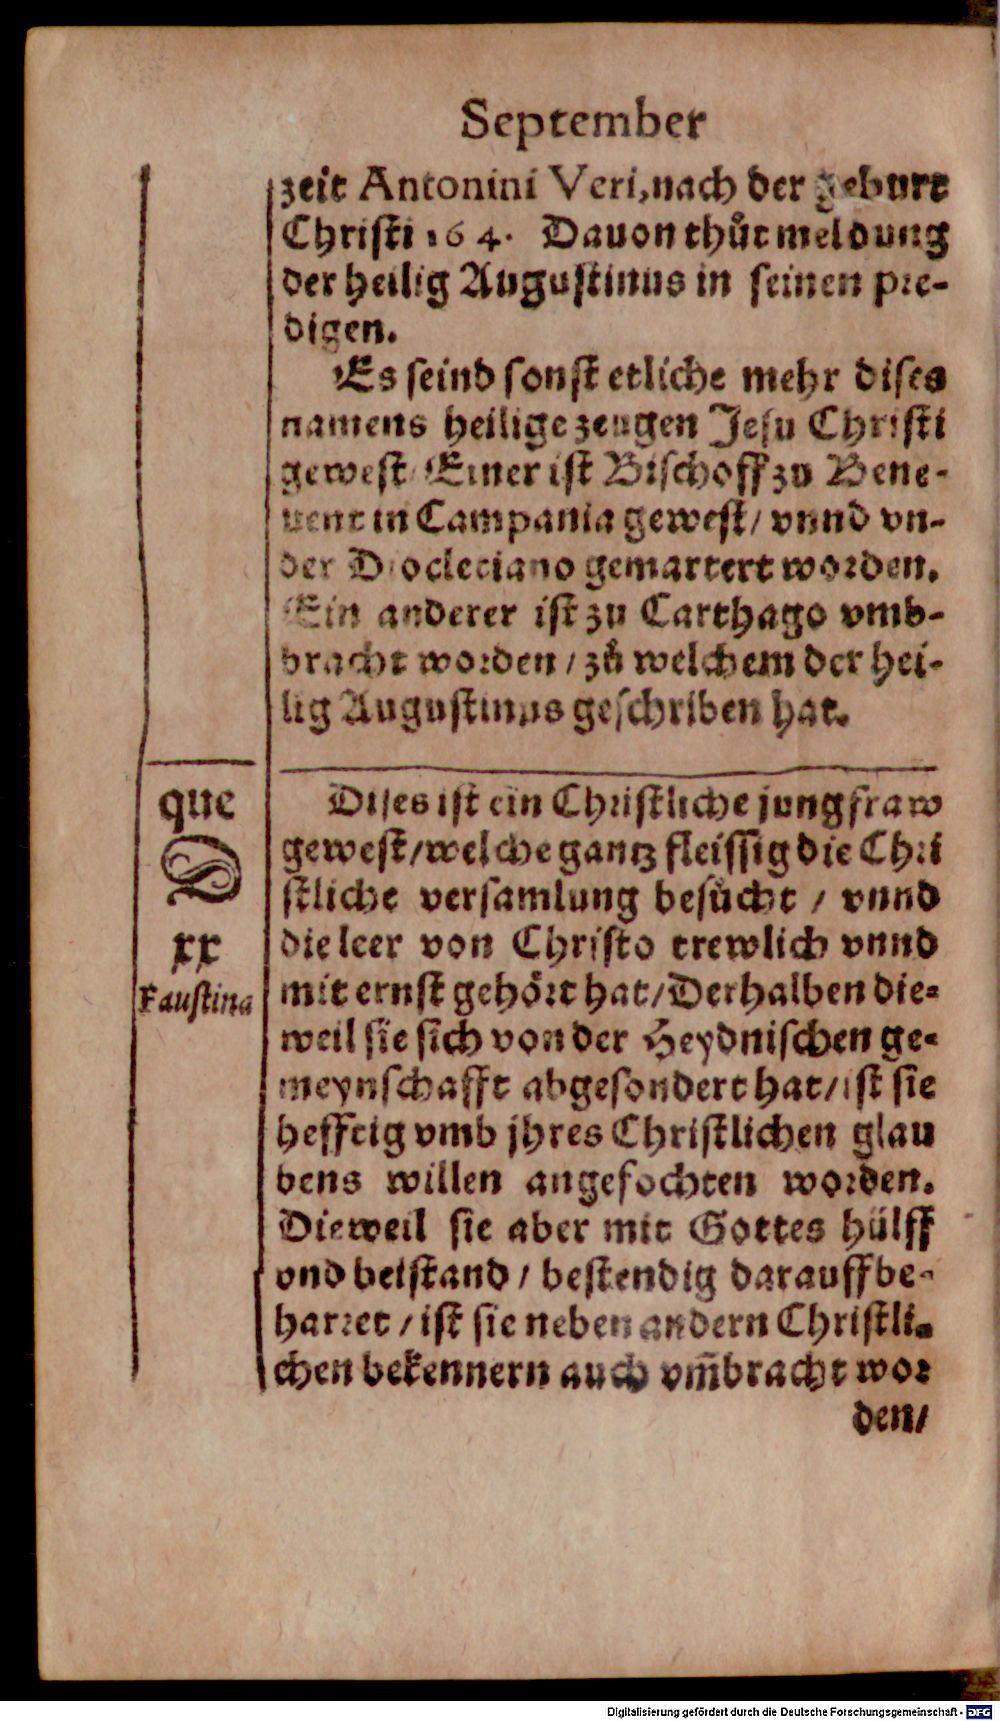 September
zeit Antonini Veri, nach der geburt
Christi 164. Dauon thůt meldung
der heilig Augustinus in seinen pre-
digen.
Es seind sonst etliche mehr dises
namens heilige zeugen Jesu Christi
gewest / Einer ist Bischoff zu Bene-
uent in Campania gewest / vnnd vn-
der Diocleciano gemartert worden.
Ein anderer ist zu Carthago vmb-
bracht worden / zů welchem der hei-
lig Augustinus geschriben hat.
que
D
xx
Faustina
Dises ist ein Christliche jungfraw
gewest / welche gantz fleissig die Chri
stliche versamlung besůcht / vnnd
die leer von Christo trewlich vnnd
mit ernst gehört hat / Derhalben die-
weil sie sich von der Heydnischen ge-
meynschafft abgesondert hat / ist sie
hefftig vmb jhres Christlichen glau
bens willen angefochten worden.
Dieweil sie aber mit Gottes hülff
vnd beistand / bestendig darauff be-
harret / ist sie neben andern Christli-
chen bekennern auch vm̃bracht wor
den /
Digitalisierung gefördert durch die Deutsche Forschungsgemeinschaft - DFG